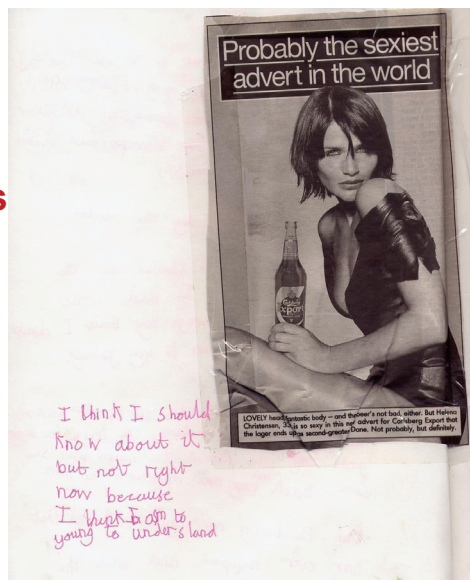 Probably the sexiest
advert in the world
Carlsberg
Export
LOVELY head, fantastic body – and the beer's not bad, either. But Helena
Christensen, 33, is so sexy in this new advert for Carlsberg Export that
the lager ends up as second-greatest Dane. Not probably, but definitely.
s
I think I should
know about it
but not right
now because
I think I am to
young to understand